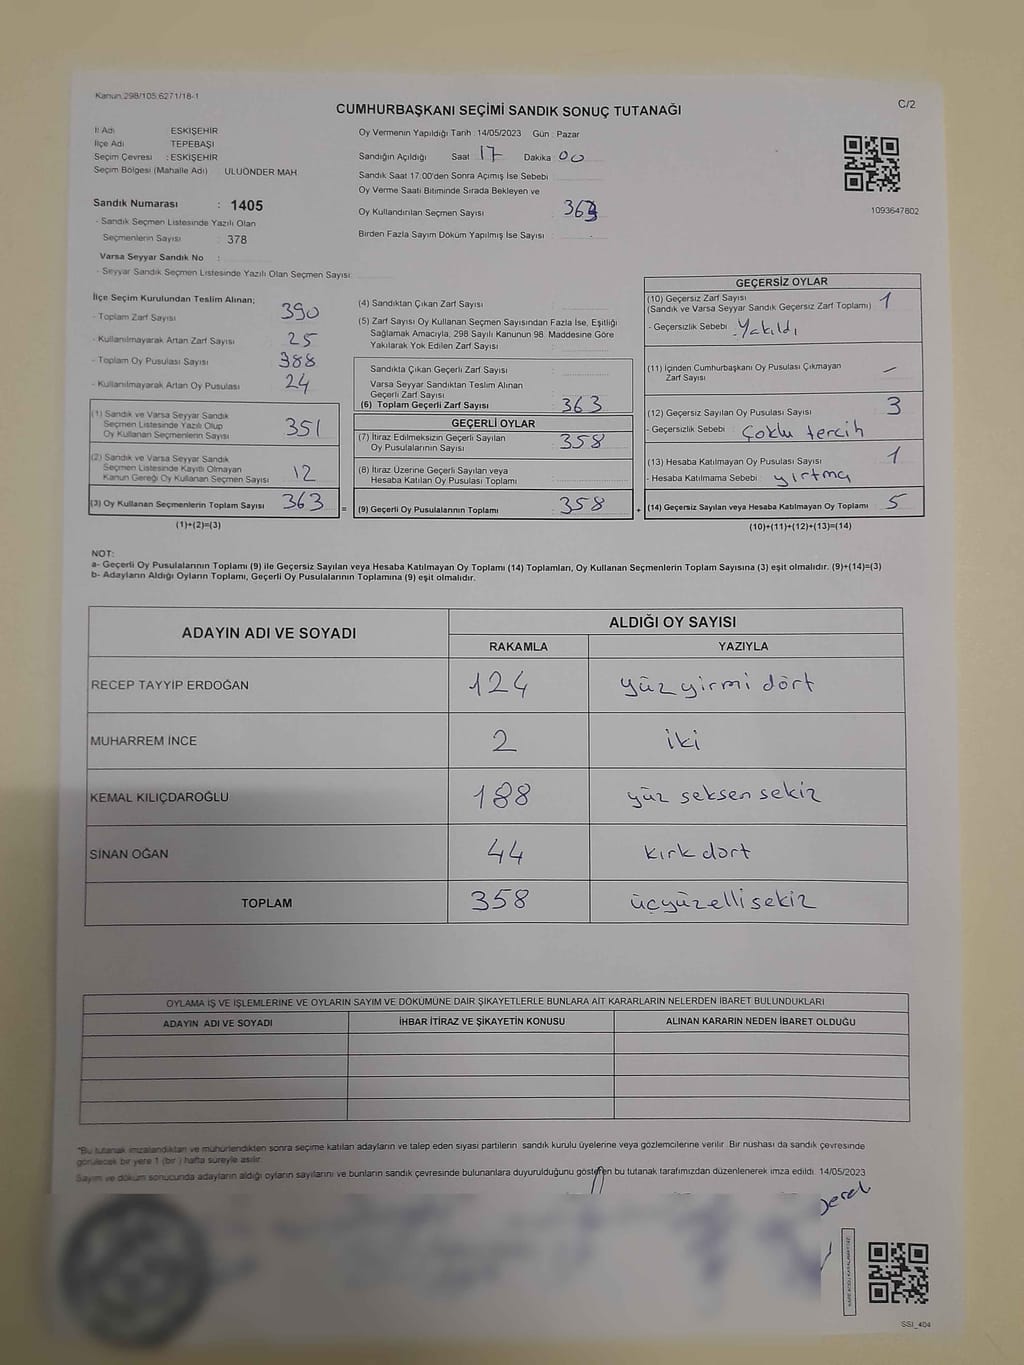 Kanun.298/105.6271/18-1
CUMHURBAŞKANI SEÇİMİ SANDIK SONUÇ TUTANAĞI
C/2
İl Adı ESKİŞEHİR
İlçe Adı TEPEBAŞI
Seçim Çevresi : ESKİŞEHİR
Seçim Bölgesi (Mahalle Adı) ULUÖNDER MAH
Oy Vermenin Yapıldığı Tarih : 14/05/2023 Gün : Pazar
Sandığın Açıldığı Saat 17 Dakika 00
Sandık Saat 17:00'den Sonra Açımış İse Sebebi
Oy Verme Saati Bitiminde Sırada Bekleyen ve
Oy Kullandırılan Seçmen Sayısı 363
Birden Fazla Sayım Döküm Yapılmış İse Sayısı
1093647802
Sandık Numarası : 1405
- Sandık Seçmen Listesinde Yazılı Olan
Seçmenlerin Sayısı : 378
Varsa Seyyar Sandık No :
- Seyyar Sandık Seçmen Listesinde Yazılı Olan Seçmen Sayısı
İlçe Seçim Kurulundan Teslim Alınan;
- Toplam Zarf Sayısı 390
- Kullanılmayarak Artan Zarf Sayısı 25
- Toplam Oy Pusulası Sayısı 388
- Kullanılmayarak Artan Oy Pusulası 24
(1) Sandık ve Varsa Seyyar Sandık
Seçmen Listesinde Yazılı Olup
Oy Kullanan Seçmenlerin Sayısı 351
(2) Sandık ve Varsa Seyyar Sandık
Seçmen Listesinde Kayıtlı Olmayan
Kanun Gereği Oy Kullanan Seçmen Sayısı 12
(3) Oy Kullanan Seçmenlerin Toplam Sayısı 363 =
(1)+(2)=(3)
(4) Sandıktan Çıkan Zarf Sayısı
(5) Zarf Sayısı Oy Kullanan Seçmen Sayısından Fazla İse, Eşitliği
Sağlamak Amacıyla, 298 Sayılı Kanunun 98. Maddesine Göre
Yakılarak Yok Edilen Zarf Sayısı
Sandıkta Çıkan Geçerli Zarf Sayısı
Varsa Seyyar Sandıktan Teslim Alınan
Geçerli Zarf Sayısı
(6) Toplam Geçerli Zarf Sayısı 363
GEÇERLİ OYLAR
(7) İtiraz Edilmeksizin Geçerli Sayılan
Oy Pusulalarının Sayısı 358
(8) İtiraz Üzerine Geçerli Sayılan veya
Hesaba Katılan Oy Pusulası Toplamı
(9) Geçerli Oy Pusulalarının Toplamı 358 +
GEÇERSİZ OYLAR
(10) Geçersiz Zarf Sayısı
(Sandık ve Varsa Seyyar Sandık Geçersiz Zarf Toplamı) 1
- Geçersizlik Sebebi : Yakıldı
(11) İçinden Cumhurbaşkanı Oy Pusulası Çıkmayan
Zarf Sayısı –
(12) Geçersiz Sayılan Oy Pusulası Sayısı 3
- Geçersizlik Sebebi : Çoklu tercih
(13) Hesaba Katılmayan Oy Pusulası Sayısı 1
- Hesaba Katılmama Sebebi : yırtma
(14) Geçersiz Sayılan veya Hesaba Katılmayan Oy Toplamı 5
(10)+(11)+(12)+(13)=(14)
NOT:
a- Geçerli Oy Pusulalarının Toplamı (9) ile Geçersiz Sayılan veya Hesaba Katılmayan Oy Toplamı (14) Toplamları, Oy Kullanan Seçmenlerin Toplam Sayısına (3) eşit olmalıdır. (9)+(14)=(3)
b- Adayların Aldığı Oyların Toplamı, Geçerli Oy Pusulalarının Toplamına (9) eşit olmalıdır.
ADAYIN ADI VE SOYADI
ALDIĞI OY SAYISI
RAKAMLA YAZIYLA
RECEP TAYYİP ERDOĞAN 124 yüz yirmi dört
MUHARREM İNCE 2 iki
KEMAL KILIÇDAROĞLU 188 yüz seksen sekiz
SİNAN OĞAN 44 kırk dört
TOPLAM 358 üçyüzellisekiz
OYLAMA İŞ VE İŞLEMLERİNE VE OYLARIN SAYIM VE DÖKÜMÜNE DAİR ŞİKAYETLERLE BUNLARA AİT KARARLARIN NELERDEN İBARET BULUNDUKLARI
ADAYIN ADI VE SOYADI İHBAR İTİRAZ VE ŞİKAYETİN KONUSU ALINAN KARARIN NEDEN İBARET OLDUĞU
*Bu tutanak imzalandıktan ve mühürlendikten sonra seçime katılan adayların ve talep eden siyasi partilerin sandık kurulu üyelerine veya gözlemcilerine verilir. Bir nüshası da sandık çevresinde
görülecek bir yere 1 (bir) hafta süreyle asılır.
Sayım ve döküm sonucunda adayların aldığı oyların sayılarını ve bunların sandık çevresinde bulunanlara duyurulduğunu gösteren bu tutanak tarafımızdan düzenlenerek imza edildi. 14/05/2023
SSİ_404